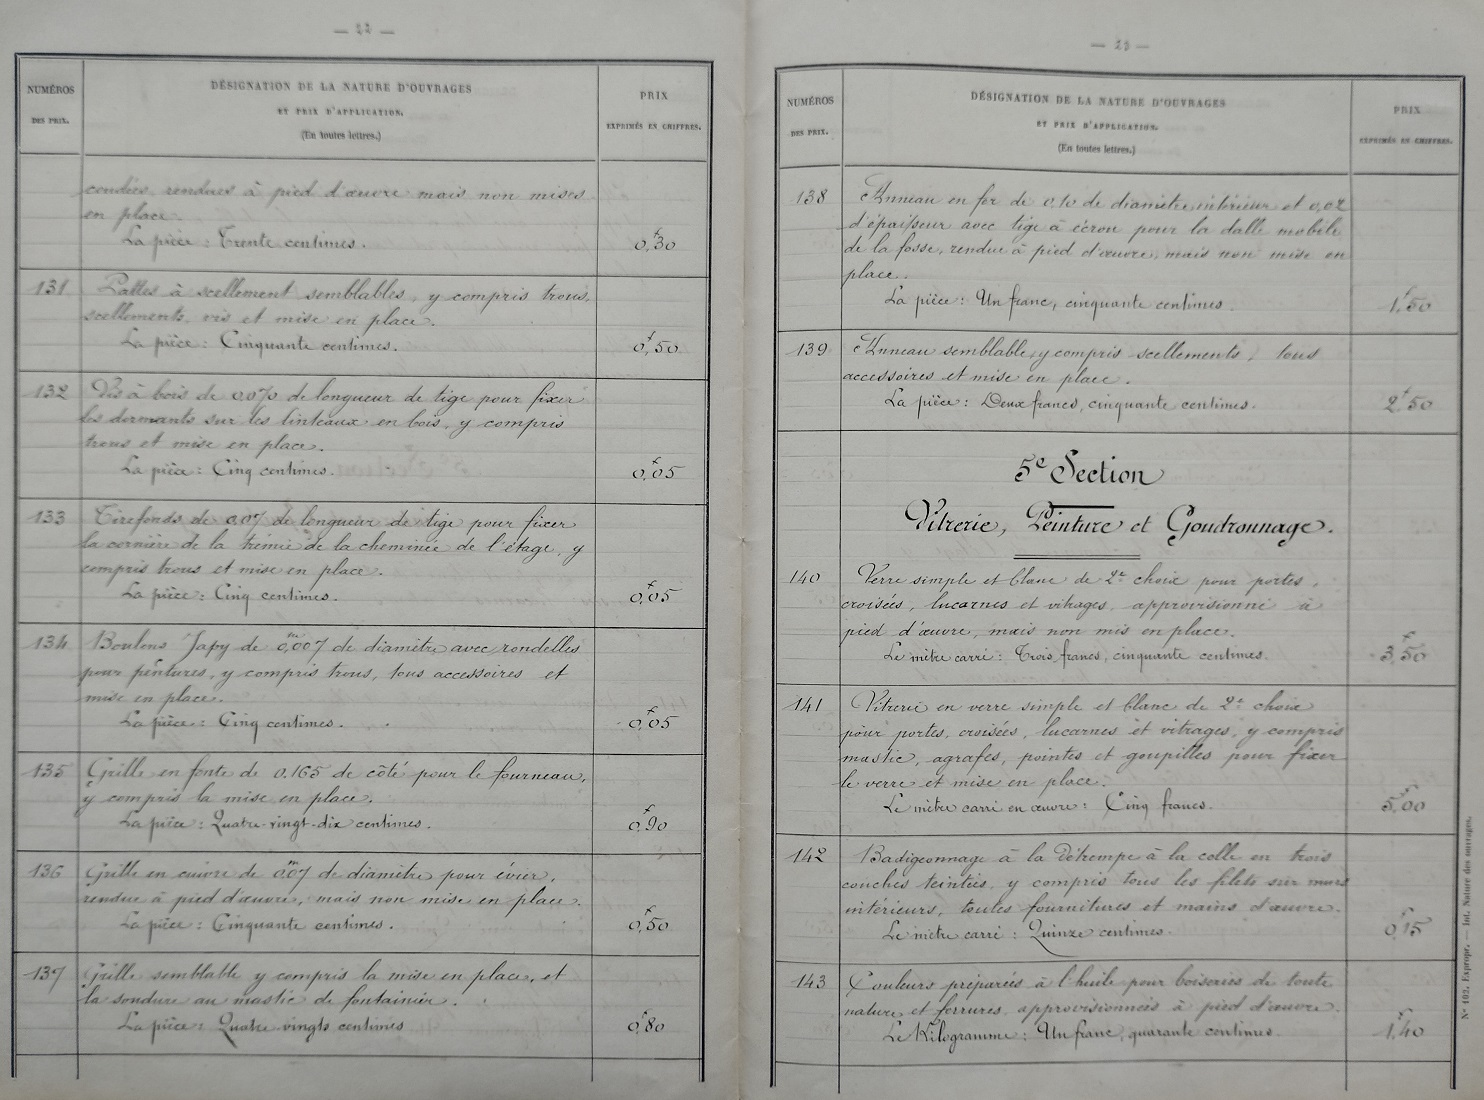 — 22 —
NUMÉROS
DES PRIX.
DÉSIGNATION DE LA NATURE D'OUVRAGES
ET PRIX D'APPLICATION.
(En toutes lettres.)
PRIX
EXPRIMÉS EN CHIFFRES.
coudées, rendues à pied d'œuvre mais non mises
en place.
La pièce : Trente centimes. 0,f30
131 Pattes à scellement semblables, y compris trous,
scellements, vis et mise en place.
La pièce : Cinquante centimes. 0,f50
132 Vis à bois de 0.070 de longueur de tige pour fixer
les dormants sur les linteaux en bois, y compris
trous et mise en place.
La pièce : Cinq centimes. 0,f05
133 Tirefonds de 0.07 de longueur de tige pour fixer
la cornière de la trémie de la cheminée de l'étage, y
compris trous et mise en place.
La pièce : Cinq centimes. 0,f05
134 Boulons Japy de 0,m007 de diamètre avec rondelles
pour pentures, y compris trous, tous accessoires et
mise en place.
La pièce : Cinq centimes. 0,f05
135 Grille en fonte de 0.165 de côté pour le fourneau,
y compris la mise en place.
La pièce : Quatre-vingt-dix centimes. 0,f90
136 Grille en cuivre de 0,m07 de diamètre pour évier,
rendue à pied d'œuvre, mais non mise en place.
La pièce : Cinquante centimes. 0,f50
137 Grille semblable y compris la mise en place, et
la soudure au mastic de fontainier.
La pièce : Quatre vingts centimes 0,f80
— 23 —
NUMÉROS
DES PRIX.
DÉSIGNATION DE LA NATURE D'OUVRAGES
ET PRIX D'APPLICATION.
(En toutes lettres.)
PRIX
EXPRIMÉS EN CHIFFRES.
138 Anneau en fer de 0.10 de diamètre intérieur et 0,02
d'épaisseur avec tige à écrou pour la dalle mobile
de la fosse, rendue à pied d'œuvre, mais non mise en
place.
La pièce : Un franc, cinquante centimes. 1,f50
139 Anneau semblable, y compris scellements, tous
accessoires et mise en place.
La pièce : Deux francs, cinquante centimes. 2,f50
5e Section
Vitrerie, Peinture et Goudronnage.
140 Verre simple et blanc de 2e choix pour portes,
croisées, lucarnes et vitrages, approvisionné à
pied d'œuvre, mais non mis en place.
Le mètre carré : Trois francs, cinquante centimes. 3,f50
141 Vitrerie en verre simple et blanc de 2e choix
pour portes, croisées, lucarnes et vitrages, y compris
mastic, agrafes, pointes et goupilles pour fixer
le verre et mise en place.
Le mètre carré en œuvre : Cinq francs. 5,f00
142 Badigeonnage à la Détrempe à la colle en trois
couches teintées, y compris tous les filets sur murs
intérieurs, toutes fournitures et mains d'œuvre.
Le mètre carré : Quinze centimes. 0,f15
143 Couleurs préparées à l'huile pour boiseries de toute
nature et ferrures, approvisionnés à pied d'œuvre.
Le Kilogramme : Un franc, quarante centimes. 1,f40
N° 102. Expropr. — Int. Nature des ouvrages.